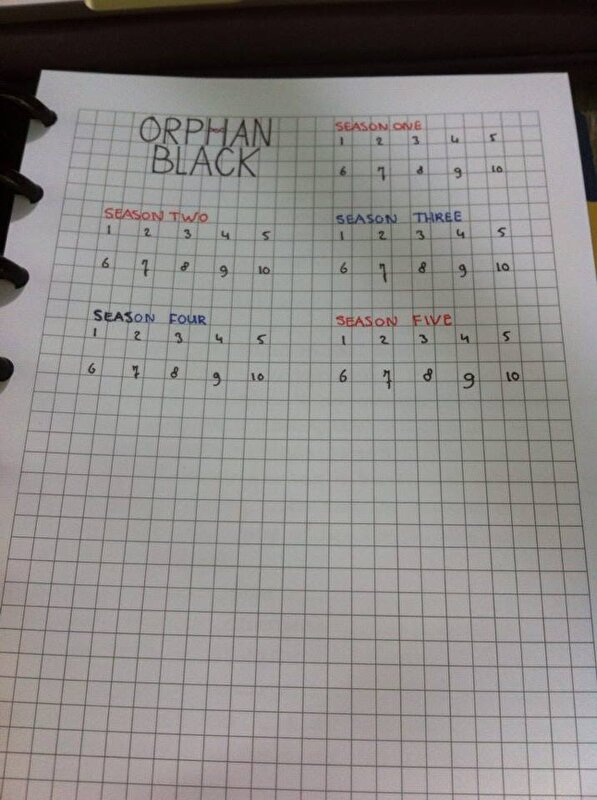 ORPHAN
BLACK
SEASON ONE
1 2 3 4 5
6 7 8 9 10
SEASON TWO
1 2 3 4 5
6 7 8 9 10
SEASON THREE
1 2 3 4 5
6 7 8 9 10
SEASON FOUR
1 2 3 4 5
6 7 8 9 10
SEASON FIVE
1 2 3 4 5
6 7 8 9 10